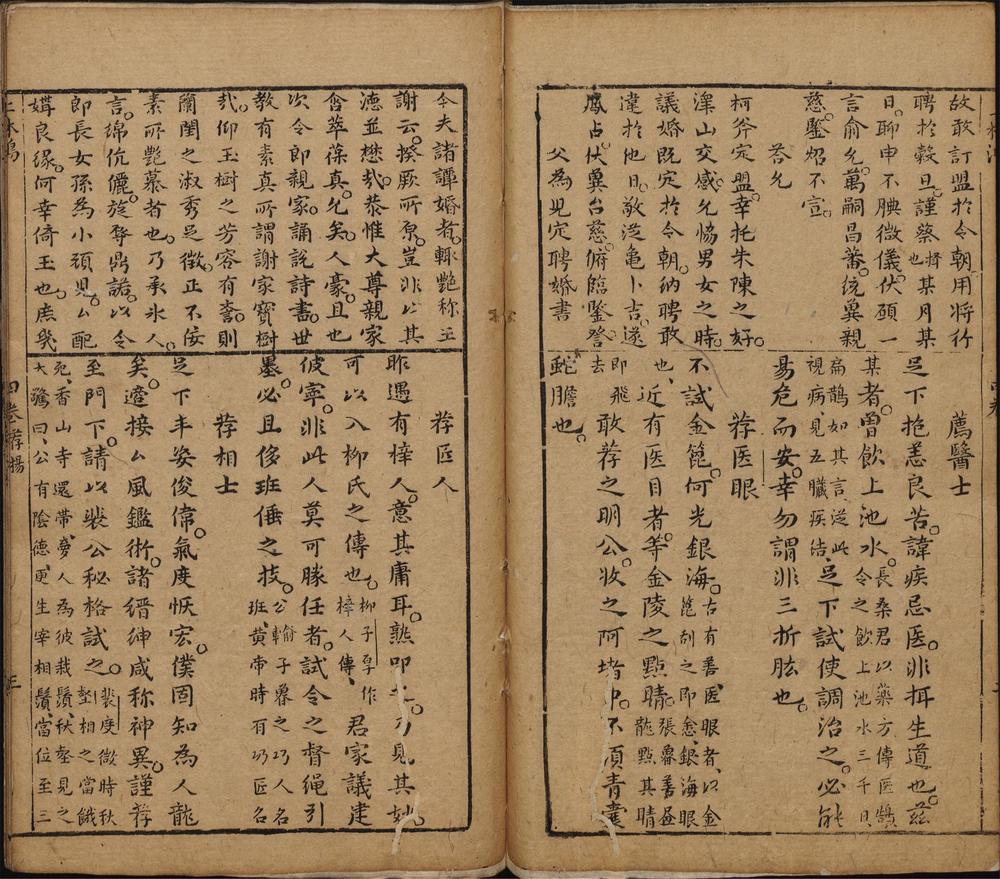 故敢訂盟於令朝用將行
聘於穀旦謹蔡將也某月其
日聊申不腆微儀伏願一
言俞允萬嗣昌蕃統冀親
慈鑒炤不宣
荅允
柯斧定盟幸托朱陳之好
深山交感允恊男女之時
議婚既定於令朝納聘敢
違於他日敬従亀卜吉遂
鳳占伏冀台慈俯臨鑒詧
父為児定聘婚書
薦醫士
足下抱恙良苦諱疾忌医非挕生道也茲
某者曾飲上池水長桑君以藥方傳医鵲令之飲上池水三千日
扁鵲如其言従此視病見五臟疾结足下試使調治之必能
易危而安幸勿謂非三折肱也
荐医眼
不試金箆何光銀海古有善医眼者以金箆刮之即愈銀海眼
也近有医目者等金陵之點睛張魯善畫龍點其睛
即飛去敢荐之明公妆之阿堵中不須青囊
蛇膽也
今夫諸譚婚者輒艷称王
謝云揆厥所原豈非以其
徳並懋哉恭惟大尊親家
含萃葆真允矣人豪且也
次令郎親家誦說詩書世
教有素真所謂謝家寳樹
哉仰玉樹之芳容有斎則
蘭閨之淑秀足徵正不佞
素所艷慕者也乃承氷人
言綿伉儷旋辱鼎諾以令
郎長女孫為小頑児厶配
媾良缘何幸倚玉也庶㡬
荐匠人
昨遇有梓人意其庸耳熟叩之乃見其妙
可以入柳氏之傳也柳子厚作梓人傳君家議建
彼寧非此人莫可勝任者試令之督绳引
墨必且侈班倕之技公輸子魯之巧人名班黄帝時有巧匠名
荐相士
足下丰姿俊偉氣度恢宏僕固知為人龍
矣適接厶風鑑術諸縉紳咸称神異謹荐
至門下請以裴公秘格試之裴度微時秋壑相之當餓
死香山寺還带夢人為彼栽鬚秋壑見之
大驚曰公有陰德更生宰相鬚當位至三
四卷荐揚